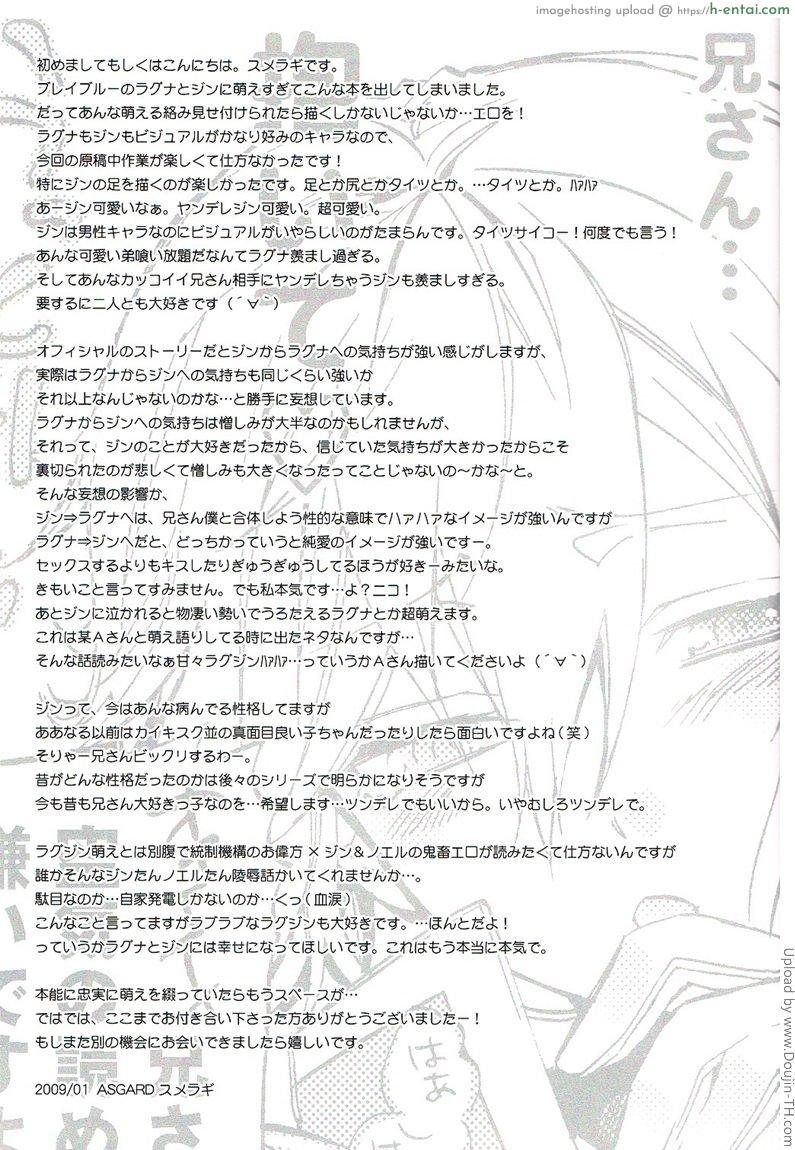 imagehosting upload @ https://h-entai.com
初めましてもしくはこんにちは。スメラギです。
ブレイブルーのラグナとジンに萌えすぎてこんな本を出してしまいました。
だってあんな萌える絡み見せ付けられたら描くしかないじゃないか…エロを！
ラグナもジンもビジュアルがかなり好みのキャラなので、
今回の原稿中作業が楽しくて仕方なかったです！
特にジンの足を描くのが楽しかったです。足とか尻とかタイツとか。…タイツとか。ﾊｧﾊｧ
あージン可愛いなぁ。ヤンデレジン可愛い。超可愛い。
ジンは男性キャラなのにビジュアルがいやらしいのがたまらんです。タイツサイコー！何度でも言う！
あんな可愛い弟喰い放題だなんてラグナ羨まし過ぎる。
そしてあんなカッコイイ兄さん相手にヤンデレちゃうジンも羨ましすぎる。
要するに二人とも大好きです（´∀｀）
オフィシャルのストーリーだとジンからラグナへの気持ちが強い感じがしますが、
実際はラグナからジンへの気持ちも同じくらい強いか
それ以上なんじゃないのかな…と勝手に妄想しています。
ラグナからジンへの気持ちは憎しみが大半なのかもしれませんが、
それって、ジンのことが大好きだったから、信じていた気持ちが大きかったからこそ
裏切られたのが悲しくて憎しみも大きくなったってことじゃないの～かな～と。
そんな妄想の影響か、
ジン⇒ラグナへは、兄さん僕と合体しよう性的な意味でハァハァなイメージが強いんですが
ラグナ⇒ジンへだと、どっちかっていうと純愛のイメージが強いですー。
セックスするよりもキスしたりぎゅうぎゅうしてるほうが好きーみたいな。
きもいこと言ってすみません。でも私本気です…よ？ニコ！
あとジンに泣かれると物凄い勢いでうろたえるラグナとか超萌えます。
これは某Ａさんと萌え語りしてる時に出たネタなんですが…
そんな話読みたいなぁ甘々ラグジンﾊｧﾊｧ…っていうかＡさん描いてくださいよ（´∀｀）
ジンって、今はあんな病んでる性格してますが
ああなる以前はカイキスク並の真面目良い子ちゃんだったりしたら面白いですよね（笑）
そりゃー兄さんビックリするわー。
昔がどんな性格だったのかは後々のシリーズで明らかになりそうですが
今も昔も兄さん大好きっ子なのを…希望します…ツンデレでもいいから。いやむしろツンデレで。
ラグジン萌えとは別腹で統制機構のお偉方×ジン＆ノエルの鬼畜エロが読みたくて仕方ないんですが
誰かそんなジンたんノエルたん陵辱話かいてくれませんか…。
駄目なのか…自家発電しかないのか…くっ（血涙）
こんなこと言ってますがラブラブなラグジンも大好きです。…ほんとだよ！
っていうかラグナとジンには幸せになってほしいです。これはもう本当に本気で。
本能に忠実に萌えを綴っていたらもうスペースが…
ではでは、ここまでお付き合い下さった方ありがとうございましたー！
もしまた別の機会にお会いできましたら嬉しいです。
2009/01 ASGARD スメラギ
兄さん…
抱いて
はぁ
Upload by www.Doujin-TH.com